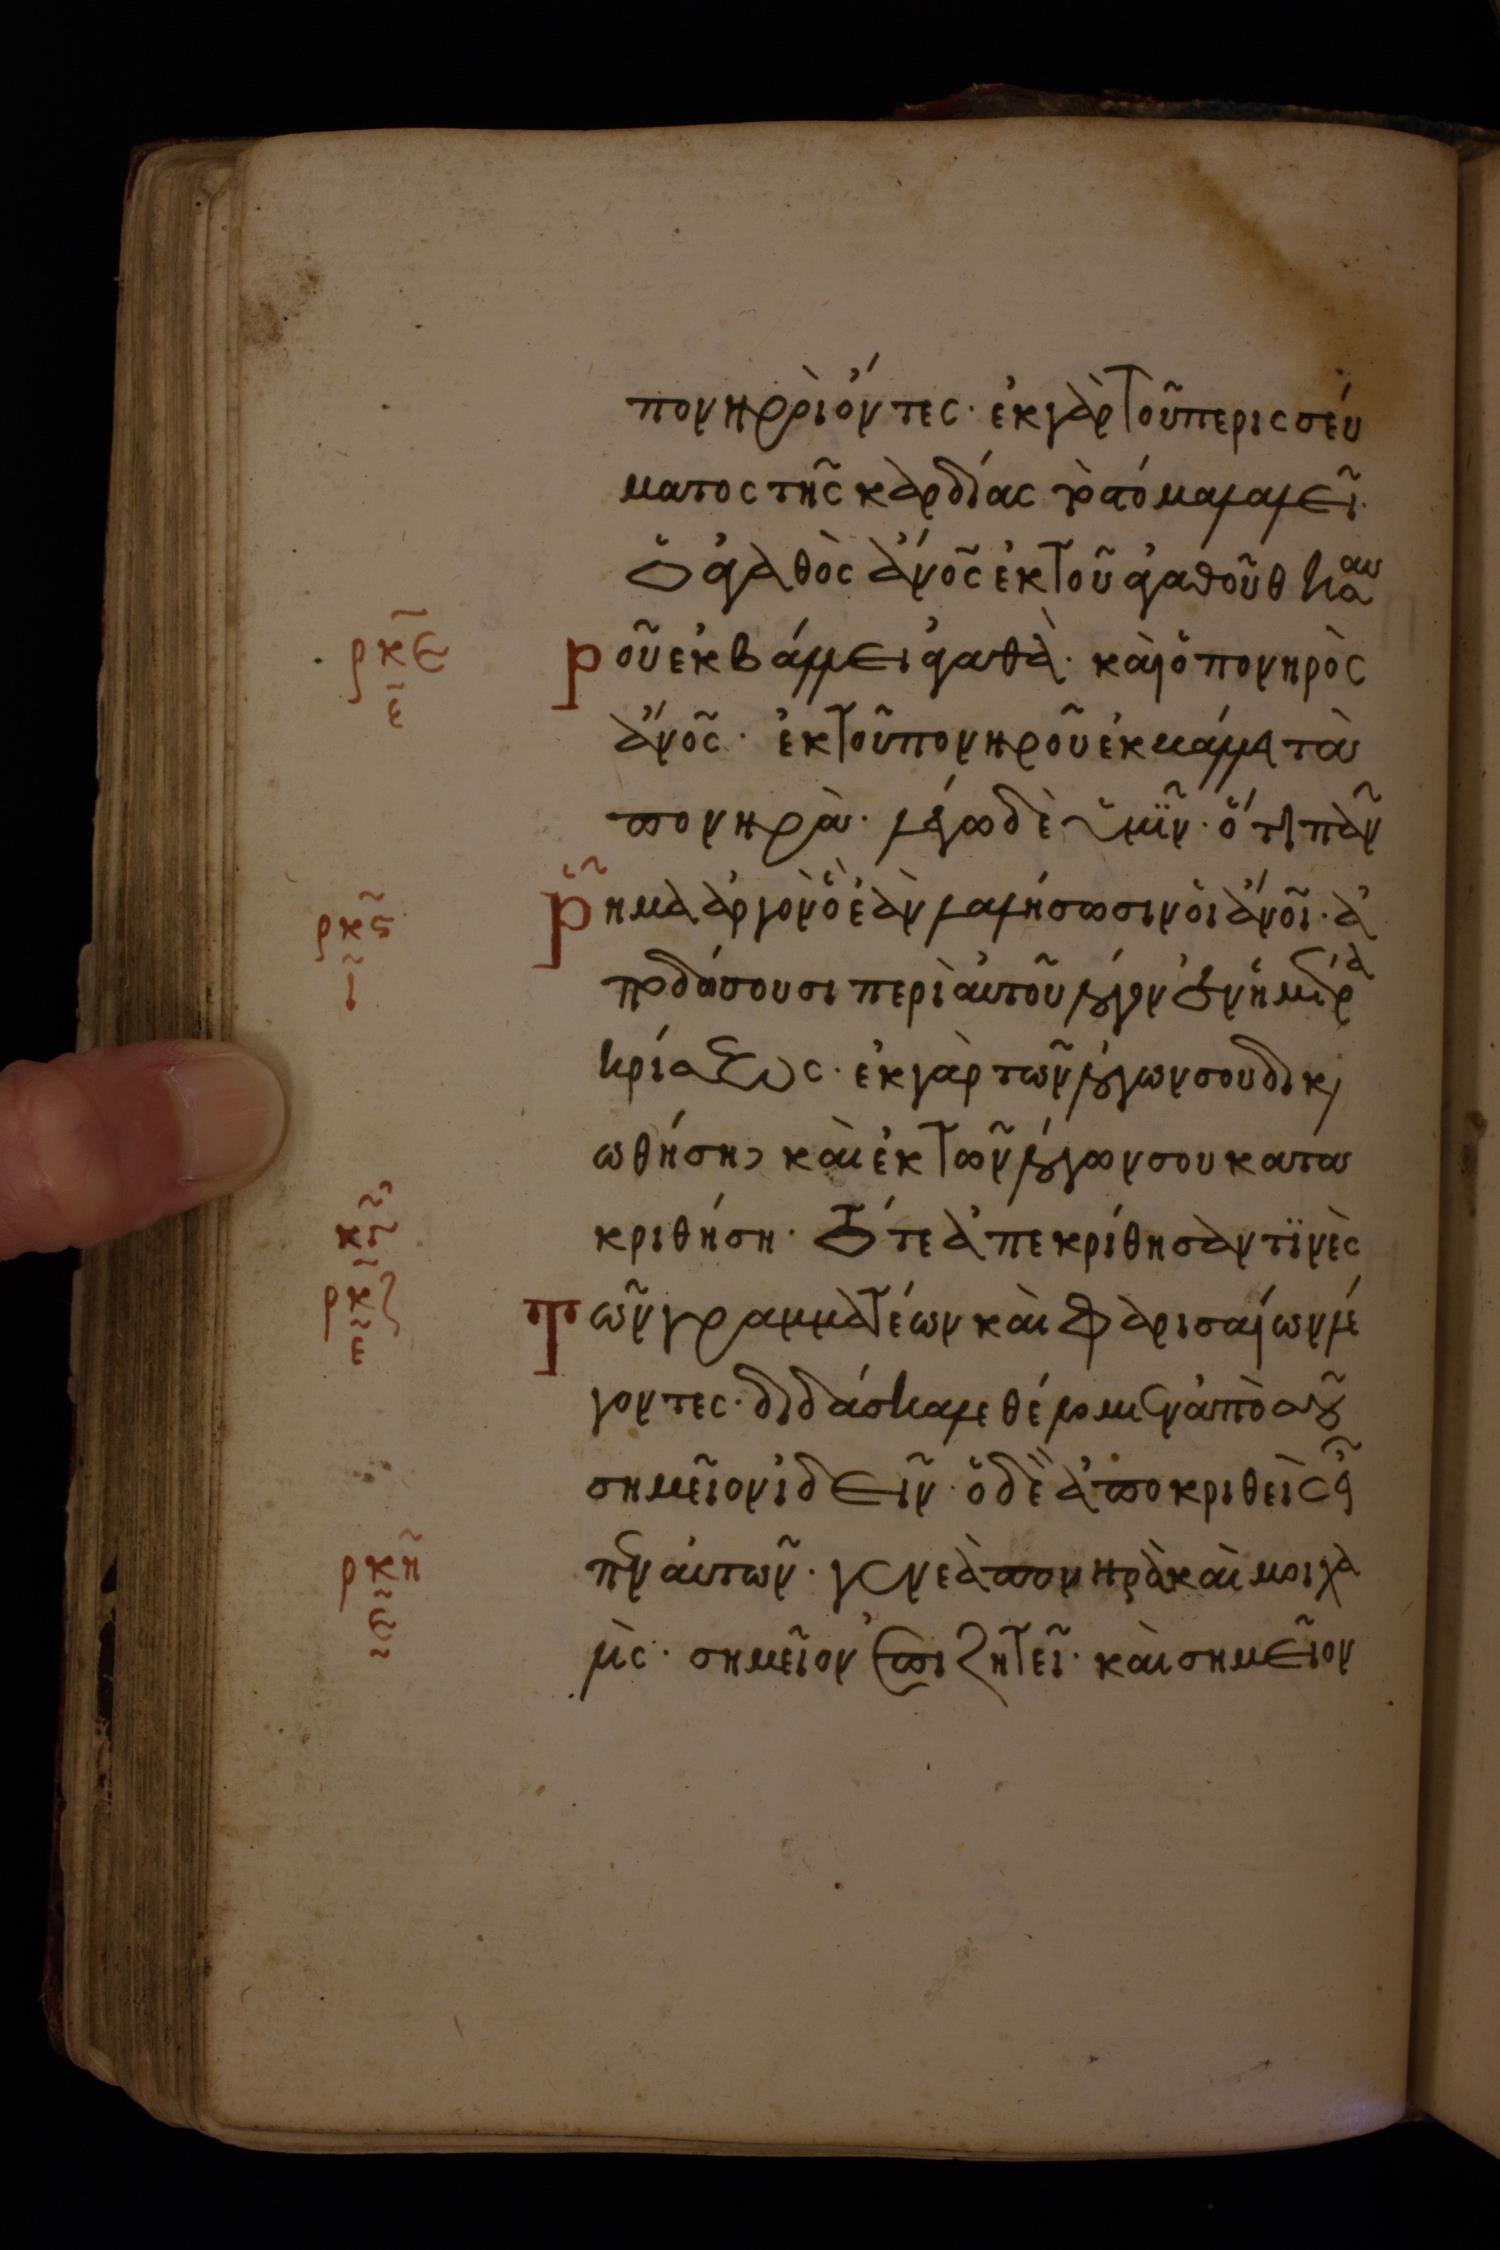 πονηροὶ ὄντες· ἐκ γὰρ τοῦ περισσεύ
ματος τῆς καρδίας τὸ στόμα λαλεῖ·
Ὁ ἀγαθὸς ἄνος ἐκ τοῦ ἀγαθοῦ θησαυ
ρκε ροῦ ἐκβάλλει ἀγαθὰ· καὶ ὁ πονηρὸς
ε
ἄνος· ἐκ τοῦ πονηροῦ ἐκβάλλει τὰ
πονηρὰ· λέγω δὲ ὑμῖν· ὅτι πὰν
ρκς ῥῆμα ἀργὸν ὃ ἐὰν λαλήσωσιν οἱ ἄνοι· ἀ
ι
ποδώσουσι περὶ αὐτοῦ λόγον ἐν ἡμέρᾳ
κρίσεως· ἐκ γὰρ τῶν λόγων σου δικαι
ωθήσῃ καὶ ἐκ τῶν λόγων σου κατα
κριθήσῃ· Τότε ἀπεκρίθησαν τινὲς
ρκζ τῶν γραμματέων καὶ Φαρισαίων λέ
ε
γοντες· διδάσκαλε θέλομεν ἀπὸ σοῦ
σημεῖον ἰδεῖν· ὁ δὲ ἀποκριθεὶς εἶ
ρκη πεν αὐτῶν· γενεὰ πονηρὰ καὶ μοιχα
ς
λὶς· σημεῖον ἐπιζητεῖ· καὶ σημεῖον